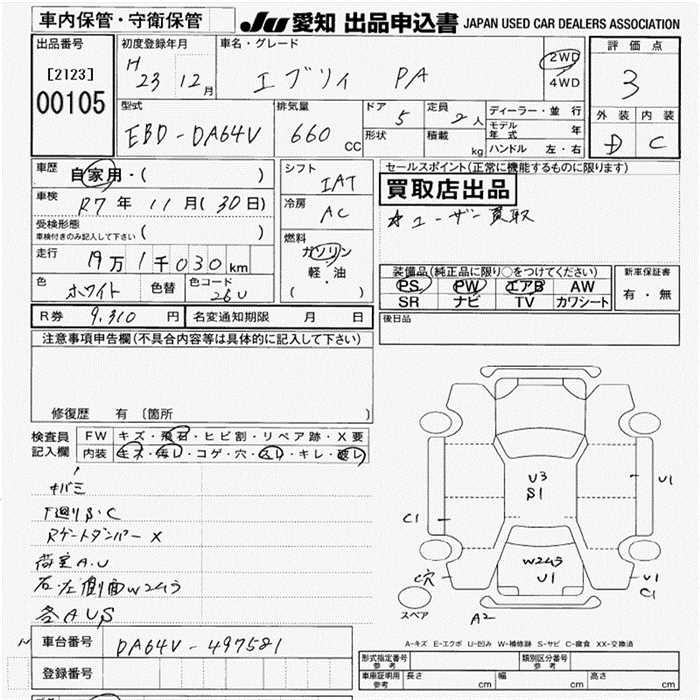 車内保管・守衛保管
JU 愛知 出品申込書 JAPAN USED CAR DEALERS ASSOCIATION
出品番号
[2123]
00105
初度登録年月
H 23 12月
車名・グレード
エブリィ PA
2WD
4WD
評価点
3
外装 内装
D C
型式
EBD-DA64V
排気量
660 CC
ドア 5
形状
定員 2人
積載 kg
ディーラー・並行
モデル年式 年
ハンドル 左・右
車歴
自家用・( )
車検
R7年 11月(30日)
受検形態
車検付きのみ記入して下さい ( )
走行
19万1千030km
色 ホワイト 色替 色コード 26U
シフト
IAT
冷房
AC
燃料
ガソリン
軽・油
( )
セールスポイント(正常に機能するものに限ります)
買取店出品
☆ユーザー買取
装備品(純正品に限り○をつけてください)
PS PW エアB AW
SR ナビ TV カワシート
新車保証書
有・無
R券 9,310円 名変通知期限 月 日
後日品
注意事項申告欄(不具合内容等は具体的に記入して下さい)
修復歴 有 〔箇所 〕
検査員
記入欄
FW キズ・飛石・ヒビ割・リペア跡・X要
内装 キズ・汚レ・コゲ・穴・スレ・キレ・破レ
キバミ
下廻りS・C
RゲートダンパーX
荷室A.U
右・左側面W2ムラ
各AUS
U3
S1
U1
C1
W2ムラ
U1
C穴
U1
C1
A2
スペア
A-キズ E-エクボ U-凹み W-補修跡 S-サビ C-腐食 XX-交換済
車台番号 DA64V-497581
登録番号
形式指定番号 参考
類別区分番号 参考
車庫証明用 参考 長さ cm 幅 cm 高さ cm